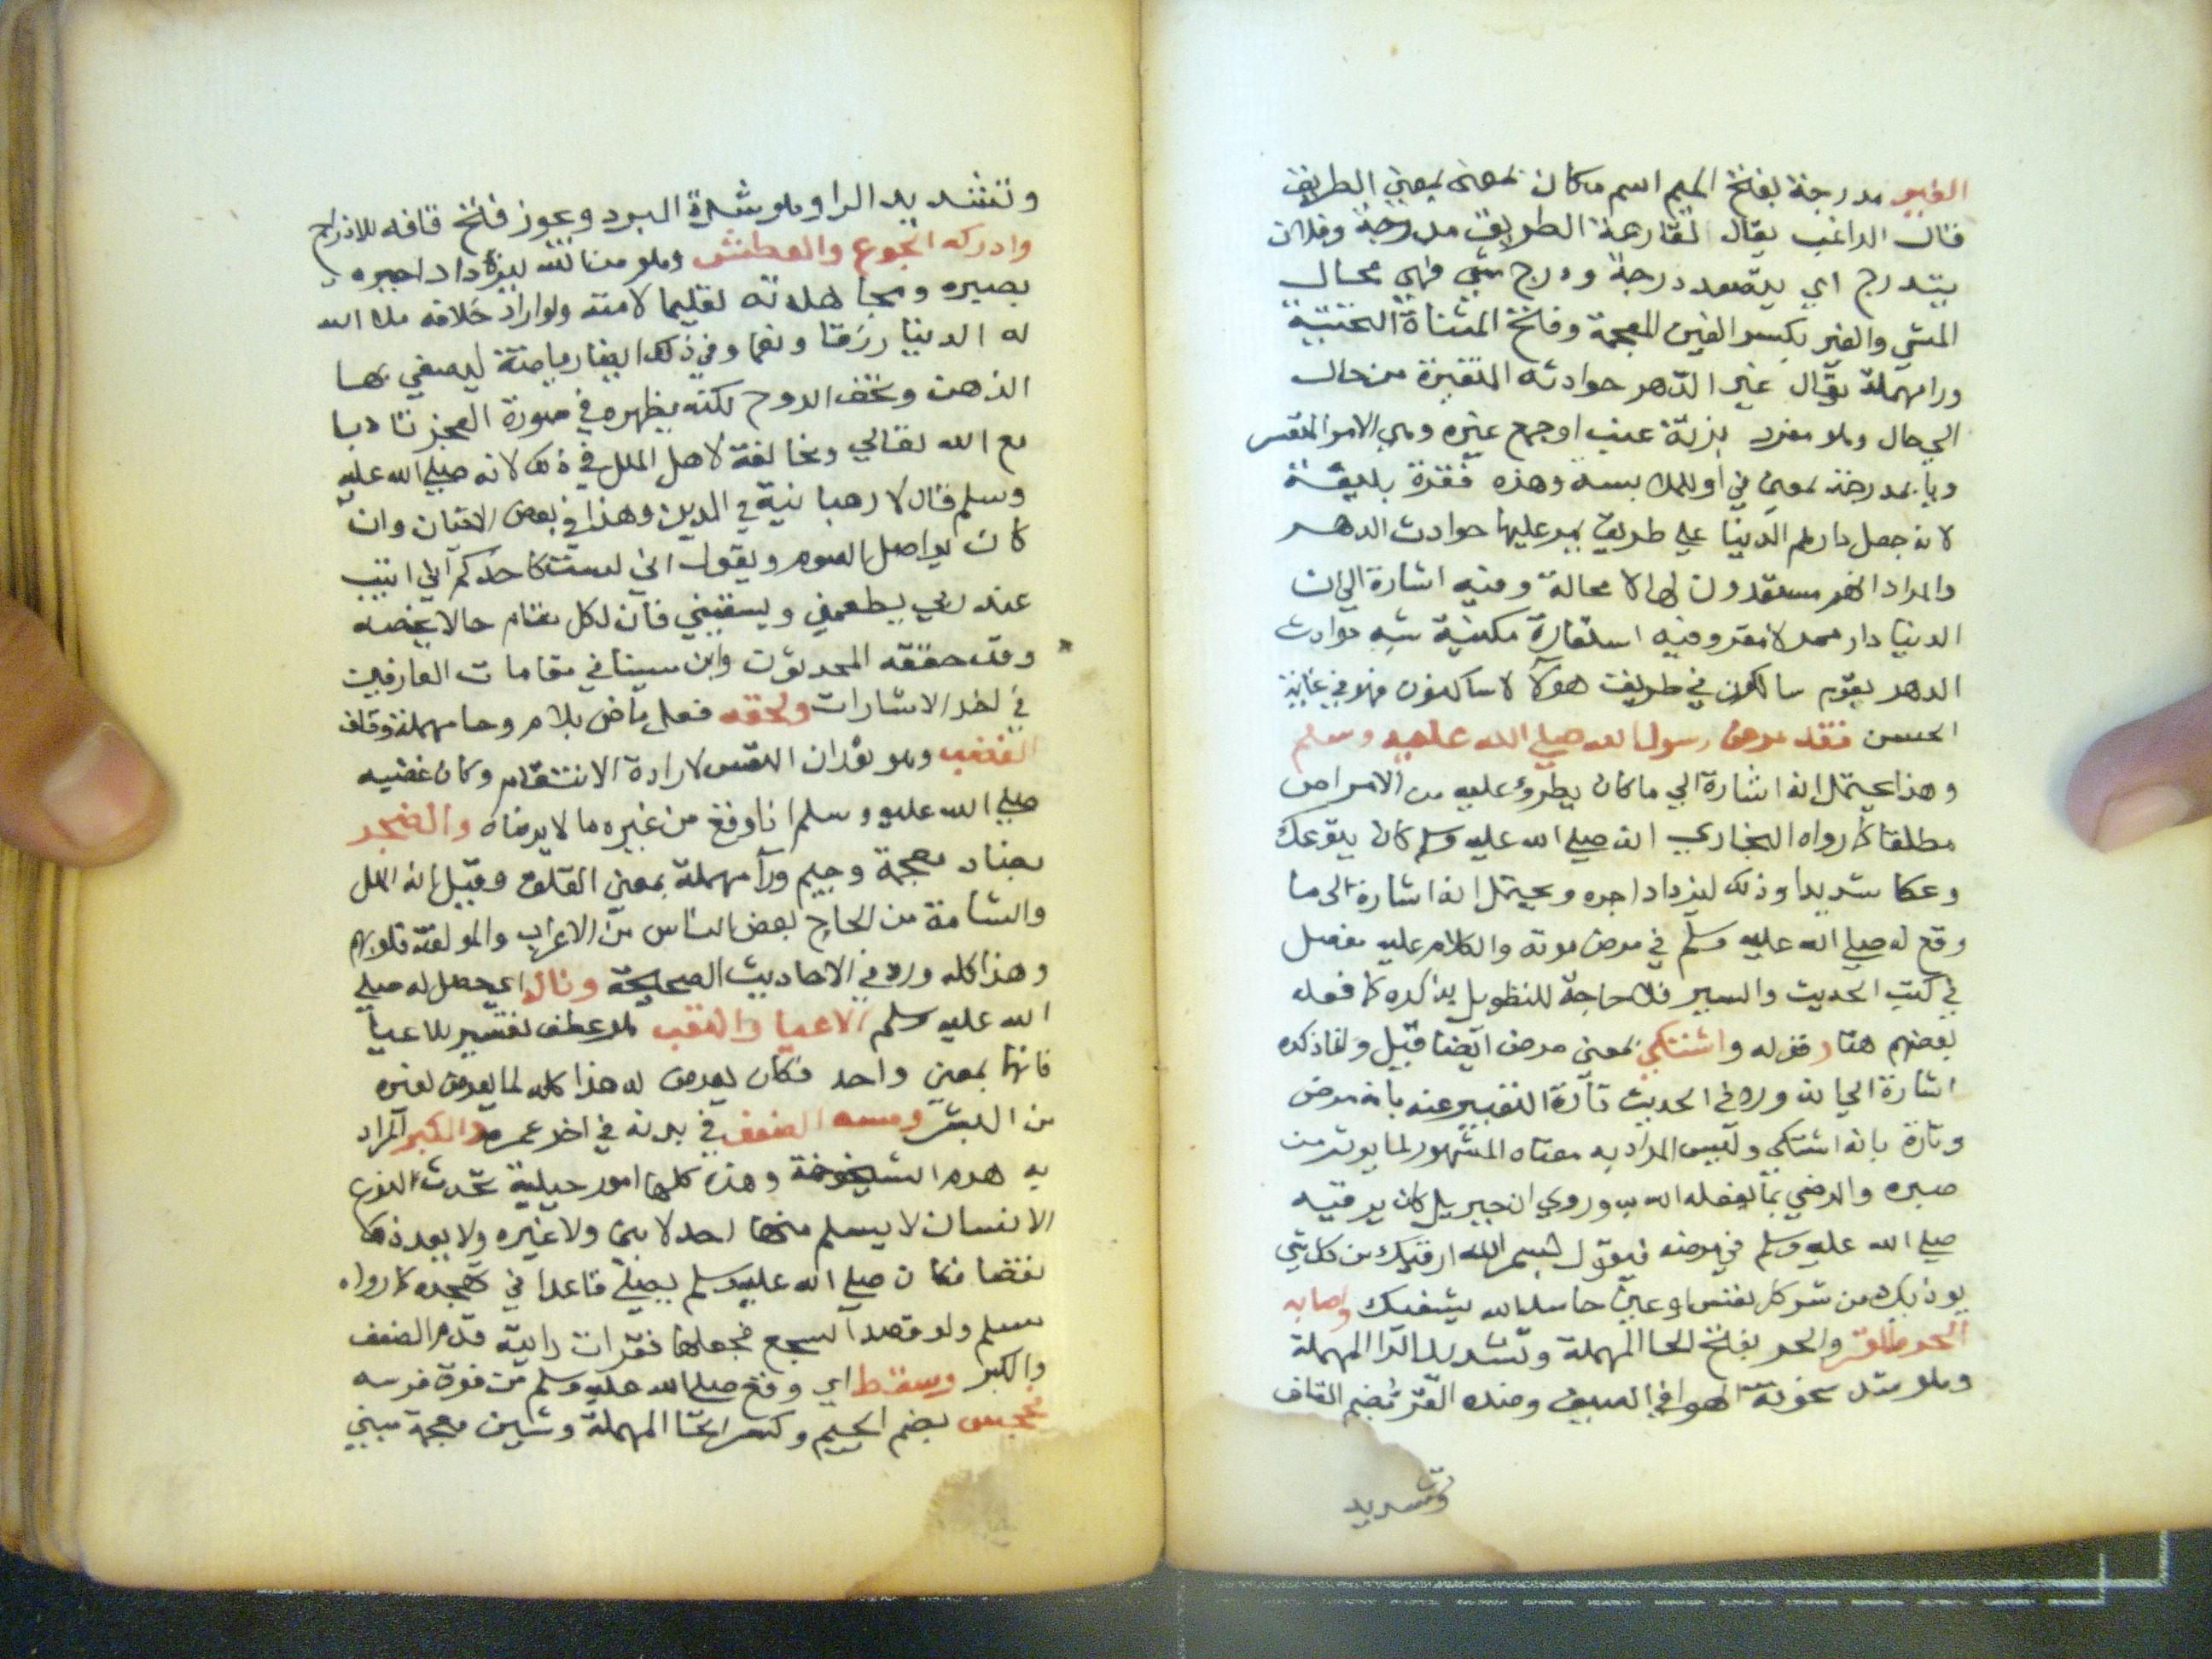 الغير مدرجة بفتح الميم اسم مكان بمعنى الطريق
قال الراغب يقال لقارعة الطريق مدرجة وفلان
يتدرج اي يتصعد درجة ودرج مشي فهي محال
المشي والغير بكسر الغين المعجمة وفتح المثناة التحتية
ورا مهملة يقال غير الدهر حوادثه المتغيرة من حال
الي حال وهو مفرد بزنة عنب او جمع غيره وهي الامر المتغير
وبا بمدرجة بمعنى في او للملابسه وهذه فقرة بليغة
لانه جعل دارهم الدنيا علي طريق يمر عليها حوادث الدهر
والمراد انهم مستعدون لها لا محالة وفيه اشارة الي ان
الدنيا دار ممر لا مقر وفيه استعارة مكنية شبه حوادث
الدهر بقوم سالكون في طريقت هولآ لا ساكنون فهو في غاية
الحسن فقد مرض رسول الله صلي الله عليه وسلم
وهذا يحتمل انه اشارة الي ما كان يطرؤ عليه من الامراض
مطلقا كما رواه البخاري انه صلي الله عليه وسلم كان يتوعك
وعكا شديدا وذلك ليزداد اجره ويحتمل انه اشارة الى ما
وقع له صلي الله عليه وسلم في مرض موته والكلام عليه مفصل
في كتب الحديث والسير فلا حاجة للتطويل بذكره كما فعله
بعضهم هنا وقوله واشتكي بمعنى مرض ايضا قيل وانما ذكره
اشارة الي انه ورد في الحديث تارة التعبير عنه بانه مرض
وتارة بانه اشتكي وليس المراد به معناه المشهور لما يوثر من
صبره والرضي بما يفعله الله به وروي ان جبريل كان يرقيه
صلي الله عليه وسلم في مرضه فيقول بسم الله ارقيك من كل شي
يوذيك من شر كل نفس او عين حاسد الله يشفيك واصابه
الحر والقر والحر بفتح الحا المهملة وتشديد الرا المهملة
وهو شد سخونة الهوا في الصيف وضده القر بضم القاف
وتشديد
وتشديد الرا وهو شدة البرد ويجوز فتح قافه للازدواج
وادركه الجوع والعطش وهو من الله ليزداد اجره
بصبره ومجاهدته تعليما لامته ولو اراد خلافه ملا الله
له الدنيا رزقا ونعما وفي ذلك ايضا رياضة ليصفي بها
الذهن وتخف الروح لكنه يظهره في صورة العجز تادبا
مع الله تعالي ومخالفة لاهل الملل في ذلك لانه صلي الله عليه
وسلم قال لا رهبانية في الدين وهذا في بعض الاحيان وان
كان يواصل الصوم ويقول اني لست كاحدكم اني ابيت
عند ربي يطعمني ويسقيني فان لكل مقام حالا يخصه
وقد حققه المحدثون وابن سينا في مقامات العارفين
في اخر الاشارات ولحقه فعل ماض بلام وحا مهملة وقاف
الغضب وهو ثوران النفس لارادة الانتقام وكان غضبه
صلي الله عليه وسلم اذا وقع من غيره ما لا يرضاه والضجر
بضاد معجمة وجيم ورآ مهملة بمعنى القلق وقيل انه الملل
والسامة من الحاح بعض الناس من الاعراب والمولفة قلوبهم
وهذا كله ورد في الاحاديث الصحيحة وناله اي حصل له صلي
الله عليه وسلم الاعيا والتعب هو عطف تفسير للاعيا
فانهما بمعنى واحد فكان يعرض له هذا كله لما يعرض لغيره
من البشر ومسه الضعف في بدنه في اخر عمره والكبر المراد
به هذه الشيخوخة وهذه كلها امور جبلية تحدث لنوع
الانسان لا يسلم منها احد لا نبى ولا غيره ولا يعد ذلك
نقصا فكان صلي الله عليه وسلم يصلي قاعدا في تهجده كما رواه
مسلم ولو قصد السجع فجعلها فقرات رايية قدم الضعف
والكبر وسقط اي وقع صلي الله عليه وسلم من فوق فرسه
فجحش بضم الجيم وكسر الحا المهملة وشين معجمة مبني